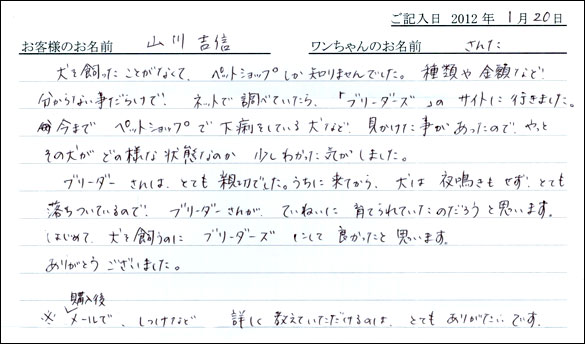 ご記入日 2012 年 1 月 20 日
お客様のお名前 山川 吉信 ワンちゃんのお名前 さんた
犬を飼ったことがなくて、ペットショップしか知りませんでした。種類や金額など
分からない事だらけで! ネットで調べていたら、「ブリーダーズ」のサイトに行きました。
今まで ペットショップで下痢をしている犬など、見かけた事があったので、やっと
その犬がどの様な状態なのか 少しわかった気がしました。
ブリーダーさんは、とても親切でした。うちに来てから、犬は夜鳴きもせず、とても
落ちついているので、ブリーダーさんが、ていねいに育てられていたのだろうと思います。
はじめて、犬を飼うのにブリーダーズにして良かったと思います。
ありがとうございました。
購入後
※メールで、しつけなど 詳しく教えていただけるのは、とてもありがたいです。